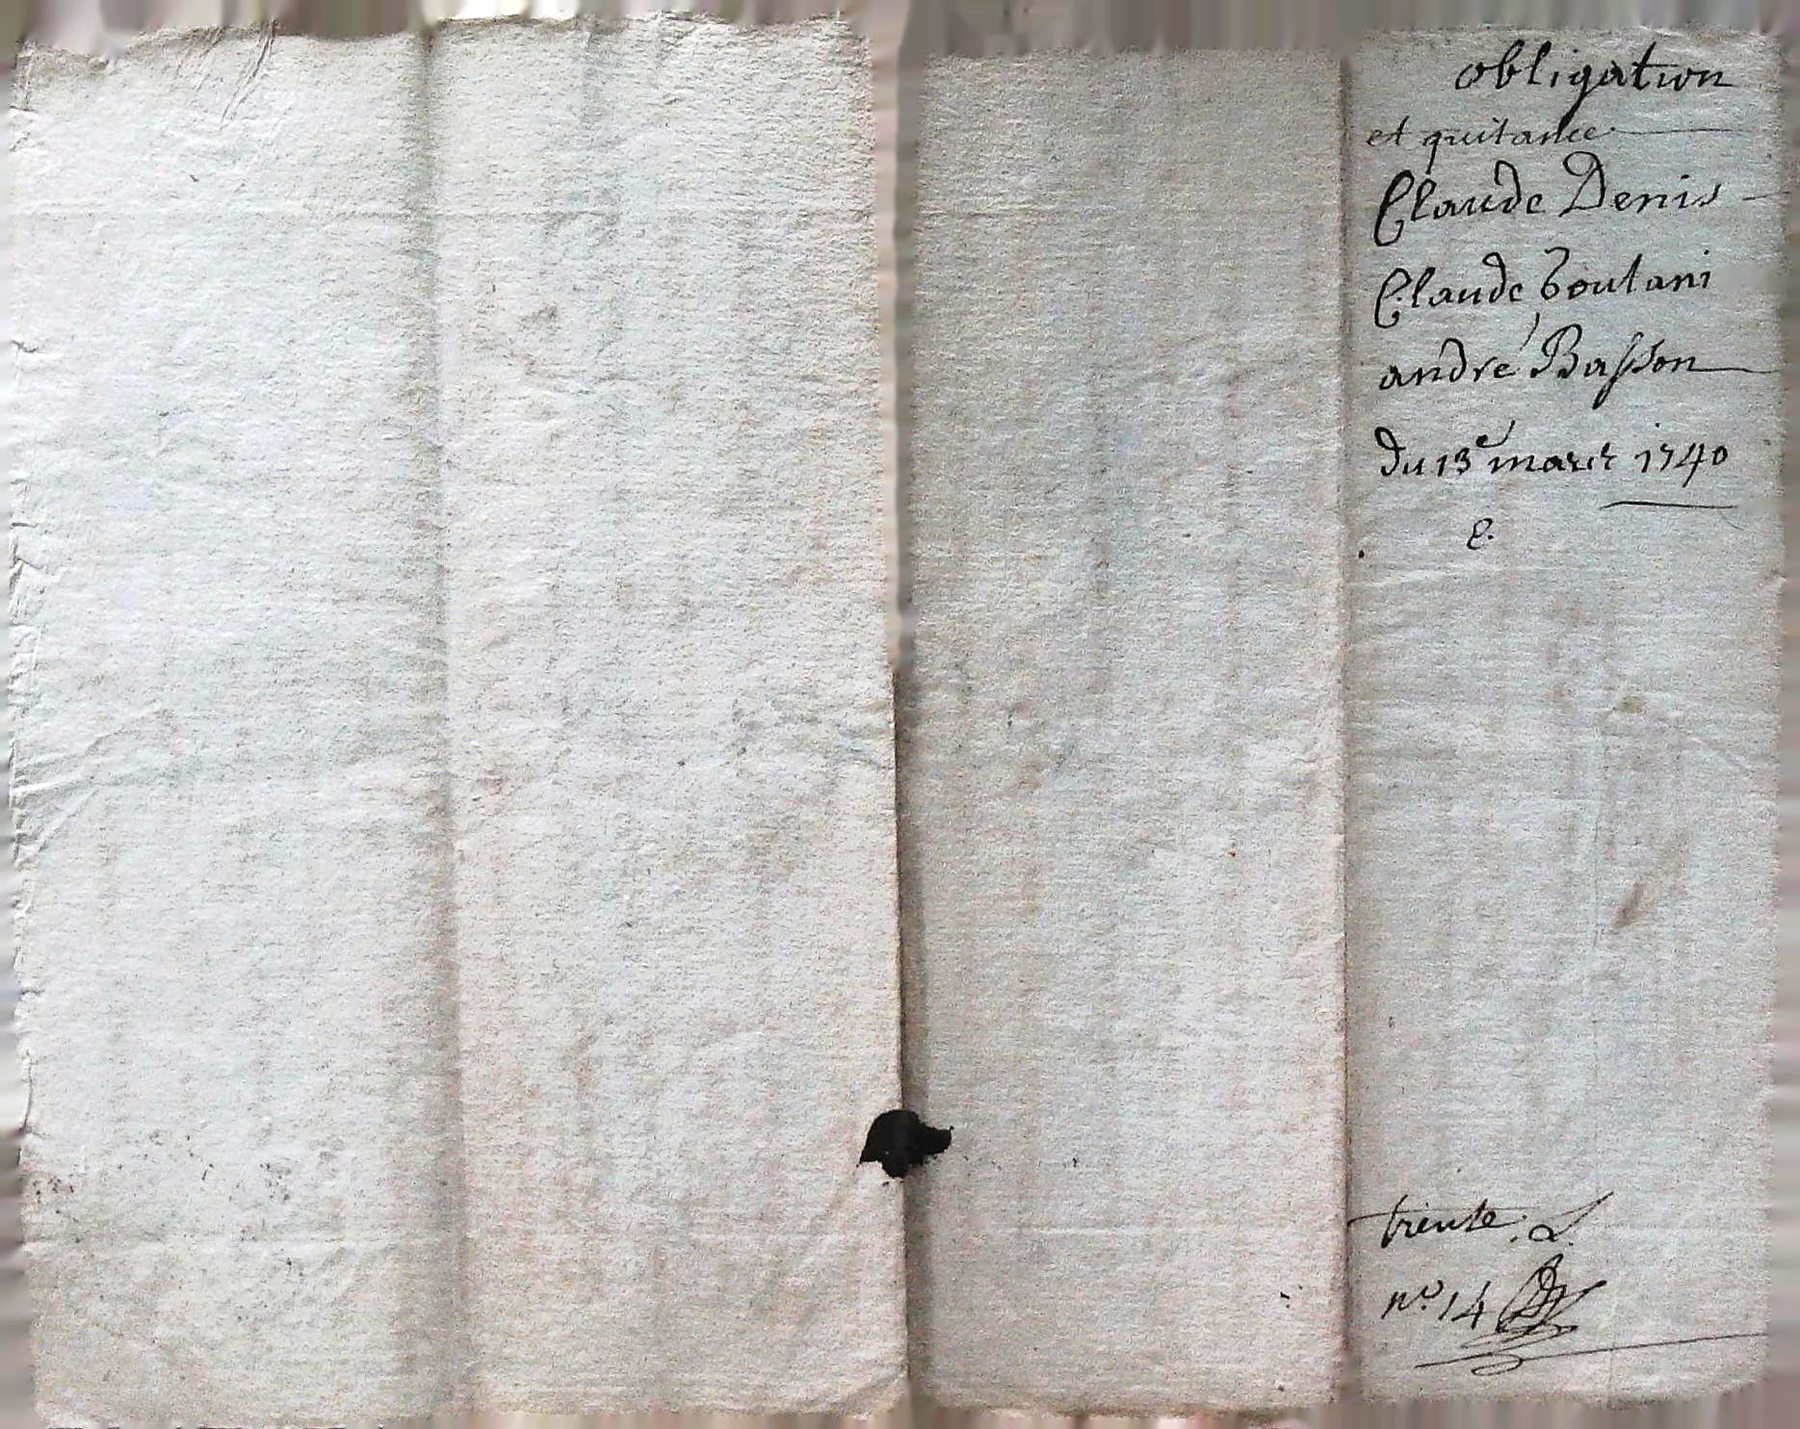 obligation
et quitance
Claude Denis
Claude Boulani
andré Basson
du 13e mars 1740
E.
trente. L.
no. 14